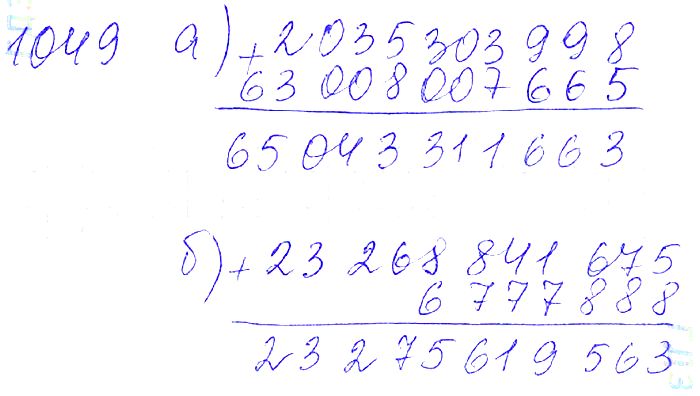 1049 а) + 2 035 303 998
63 008 007 665
65 043 311 663
б) + 23 268 841 675
6 777 888
23 275 619 563